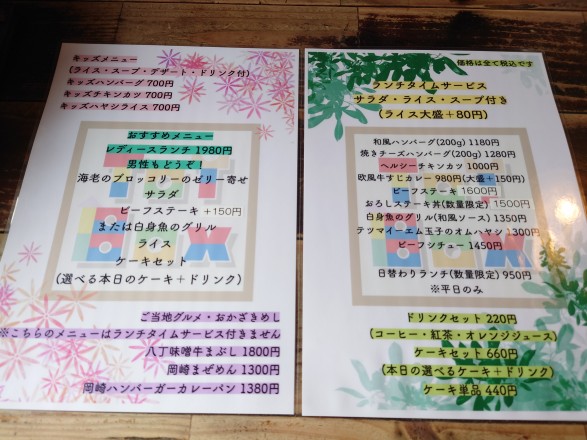 キッズメニュー
(ライス・スープ・デザート・ドリンク付)
キッズハンバーグ 700円
キッズチキンカツ 700円
キッズハヤシライス 700円
おすすめメニュー
レディースランチ 1980円
男性もどうぞ!
海老のブロッコリーのゼリー寄せ
サラダ
ビーフステーキ +150円
または白身魚のグリル
ライス
ケーキセット
(選べる本日のケーキ+ドリンク)
ご当地グルメ・おかざきめし
※こちらのメニューはランチタイムサービス付きません
八丁味噌牛まぶし 1800円
岡崎まぜめん 1300円
岡崎ハンバーガーカレーパン 1380円
価格は全て税込です
ランチタイムサービス
サラダ・ライス・スープ付き
(ライス大盛+80円)
和風ハンバーグ(200g) 1180円
焼きチーズハンバーグ(200g) 1280円
ヘルシーチキンカツ 1000円
欧風牛すじカレー 980円(大盛+150円)
ビーフステーキ 1600円
おろしステーキ丼(数量限定) 1500円
白身魚のグリル(和風ソース) 1350円
テツマイーエム玉子のオムハヤシ 1300円
ビーフシチュー 1450円
日替わりランチ(数量限定) 950円
※平日のみ
ドリンクセット 220円
(コーヒー・紅茶・オレンジジュース)
ケーキセット 660円
(本日の選べるケーキ+ドリンク)
ケーキ単品 440円